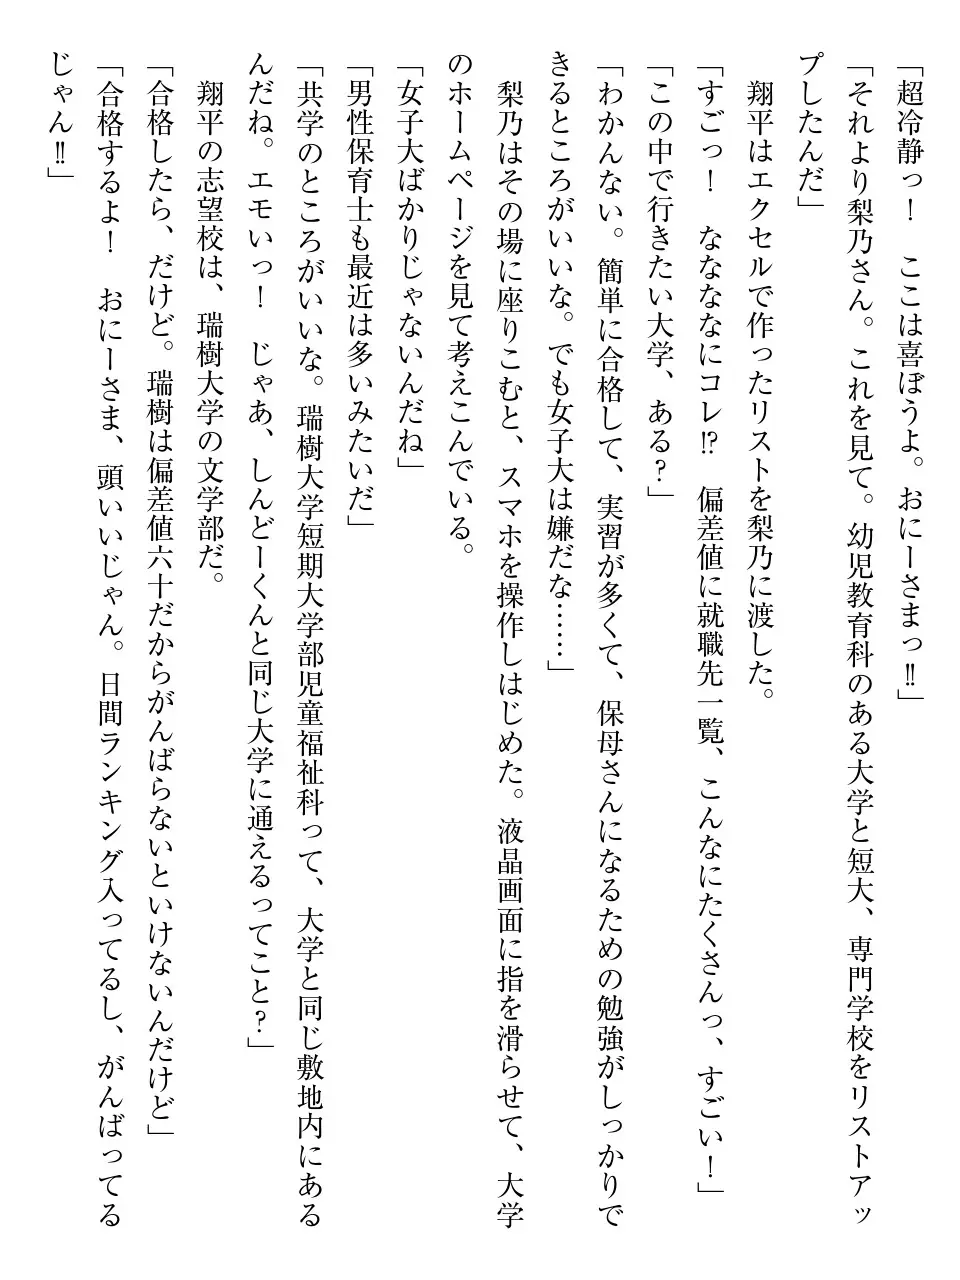 「超冷静っ！　ここは喜ぼうよ。おにーさまっ‼」
「それより梨乃さん。これを見て。幼児教育科のある大学と短大、専門学校をリストアッ
プしたんだ」
　翔平はエクセルで作ったリストを梨乃に渡した。
「すごっ！　なななにコレ⁉　偏差値に就職先一覧、こんなにたくさんっ、すごい！」
「この中で行きたい大学、ある？」
「わかんない。簡単に合格して、実習が多くて、保母さんになるための勉強がしっかりで
きるところがいいな。でも女子大は嫌だな……」
　梨乃はその場に座りこむと、スマホを操作しはじめた。液晶画面に指を滑らせて、大学
のホームページを見て考えこんでいる。
「女子大ばかりじゃないんだね」
「男性保育士も最近は多いみたいだ」
「共学のところがいいな。瑞樹大学短期大学部児童福祉科って、大学と同じ敷地内にある
んだね。エモいっ！　じゃあ、しんどーくんと同じ大学に通えるってこと？」
　翔平の志望校は、瑞樹大学の文学部だ。
「合格したら、だけど。瑞樹は偏差値六十だからがんばらないといけないんだけど」
「合格するよ！　おにーさま、頭いいじゃん。日間ランキング入ってるし、がんばってる
じゃん‼」